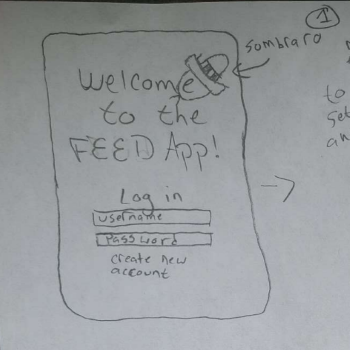 1
Sombraro
Welcome
to the
FEED App!
Log in
username
Password
create new
account
to
set
an